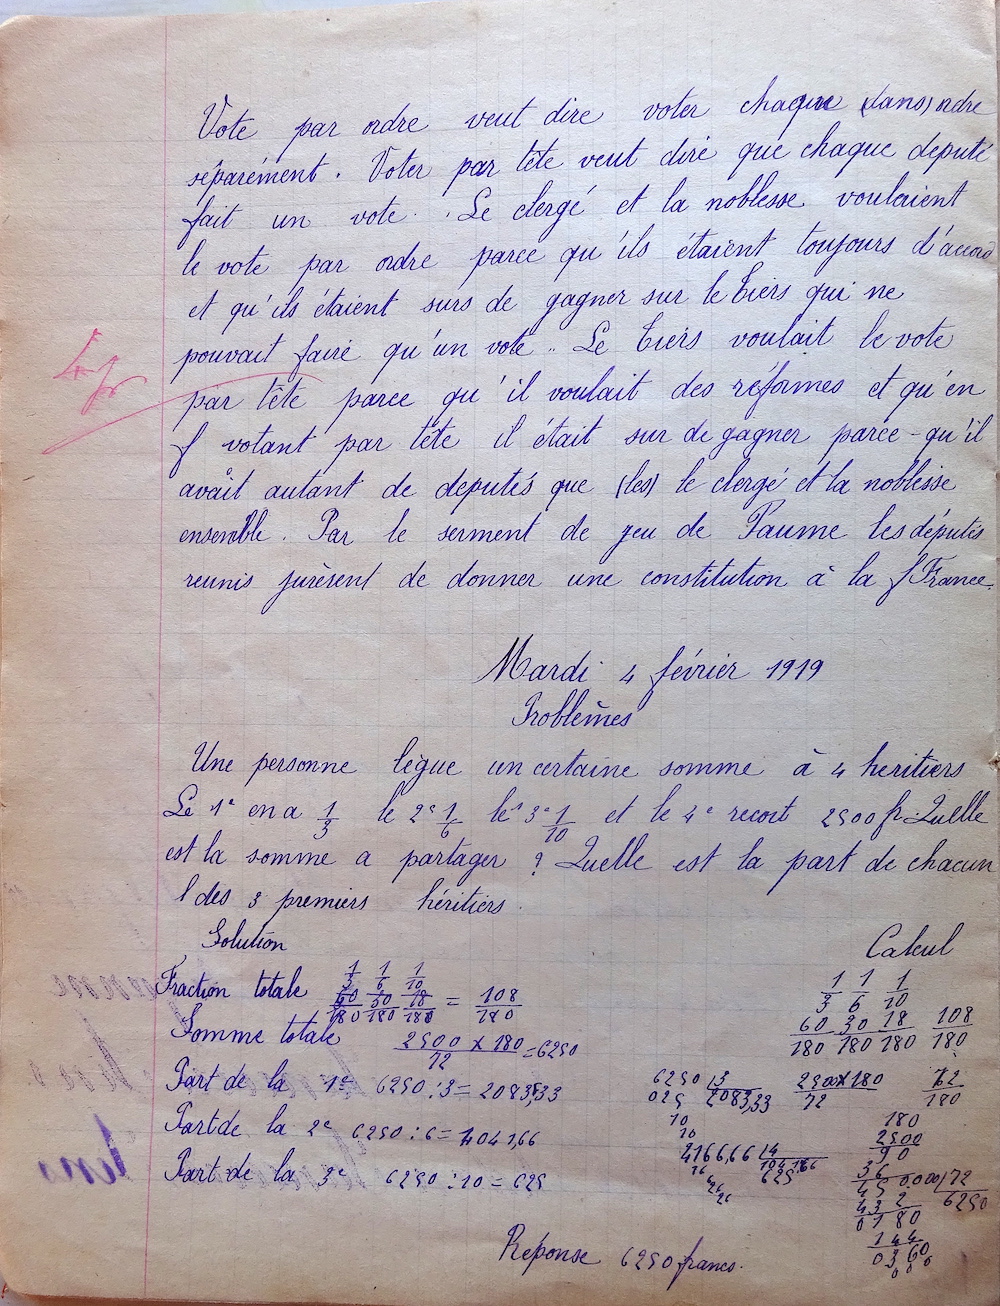 Vote par ordre veut dire voter chaque (dans) ordre
séparément. Voter par tête veut dire que chaque député
fait un vote. Le clergé et la noblesse voulaient
le vote par ordre parce qu'ils étaient toujours d'accord
et qu'ils étaient surs de gagner sur le tiers qui ne
pouvait faire qu'un vote. Le tiers voulait le vote
par tête parce qu'il voulait des réformes et qu'en
votant par tête il était sur de gagner parce-qu'il
avait autant de députés que (les) le clergé et la noblesse
ensemble. Par le serment de jeu de Paume les députés
reunis jurèsent de donner une constitution à la France.
Mardi 4 février 1919
Problèmes
Une personne lègue un certaine somme à 4 héritiers
Le 1e en a 1/3 le 2e 1/6 le 3e 1/10 et le 4e recoit 2500 fr. Quelle
est la somme a partager ? Quelle est la part de chacun
des 3 premiers héritiers.
Solution Calcul
Fraction totale 1/3 1/6 1/10
60/180 30/180 18/180 = 108/180
Somme totale 2500 x 180/72 = 6250
Part de la 1e 6250 : 3 = 2083,33
Part de la 2e 6250 : 6 = 1041,66
Part de la 3e 6250 : 10 = 625
1/3 1/6 1/10
60/180 30/180 18/180 108/180
6250 3
025 2083,33
10
10
2500 x 180/72
72/180
2166,66
625
180
2500
90
36
45 0000 72
432 6250
0180
144
0360
000
Réponse 6250 francs.